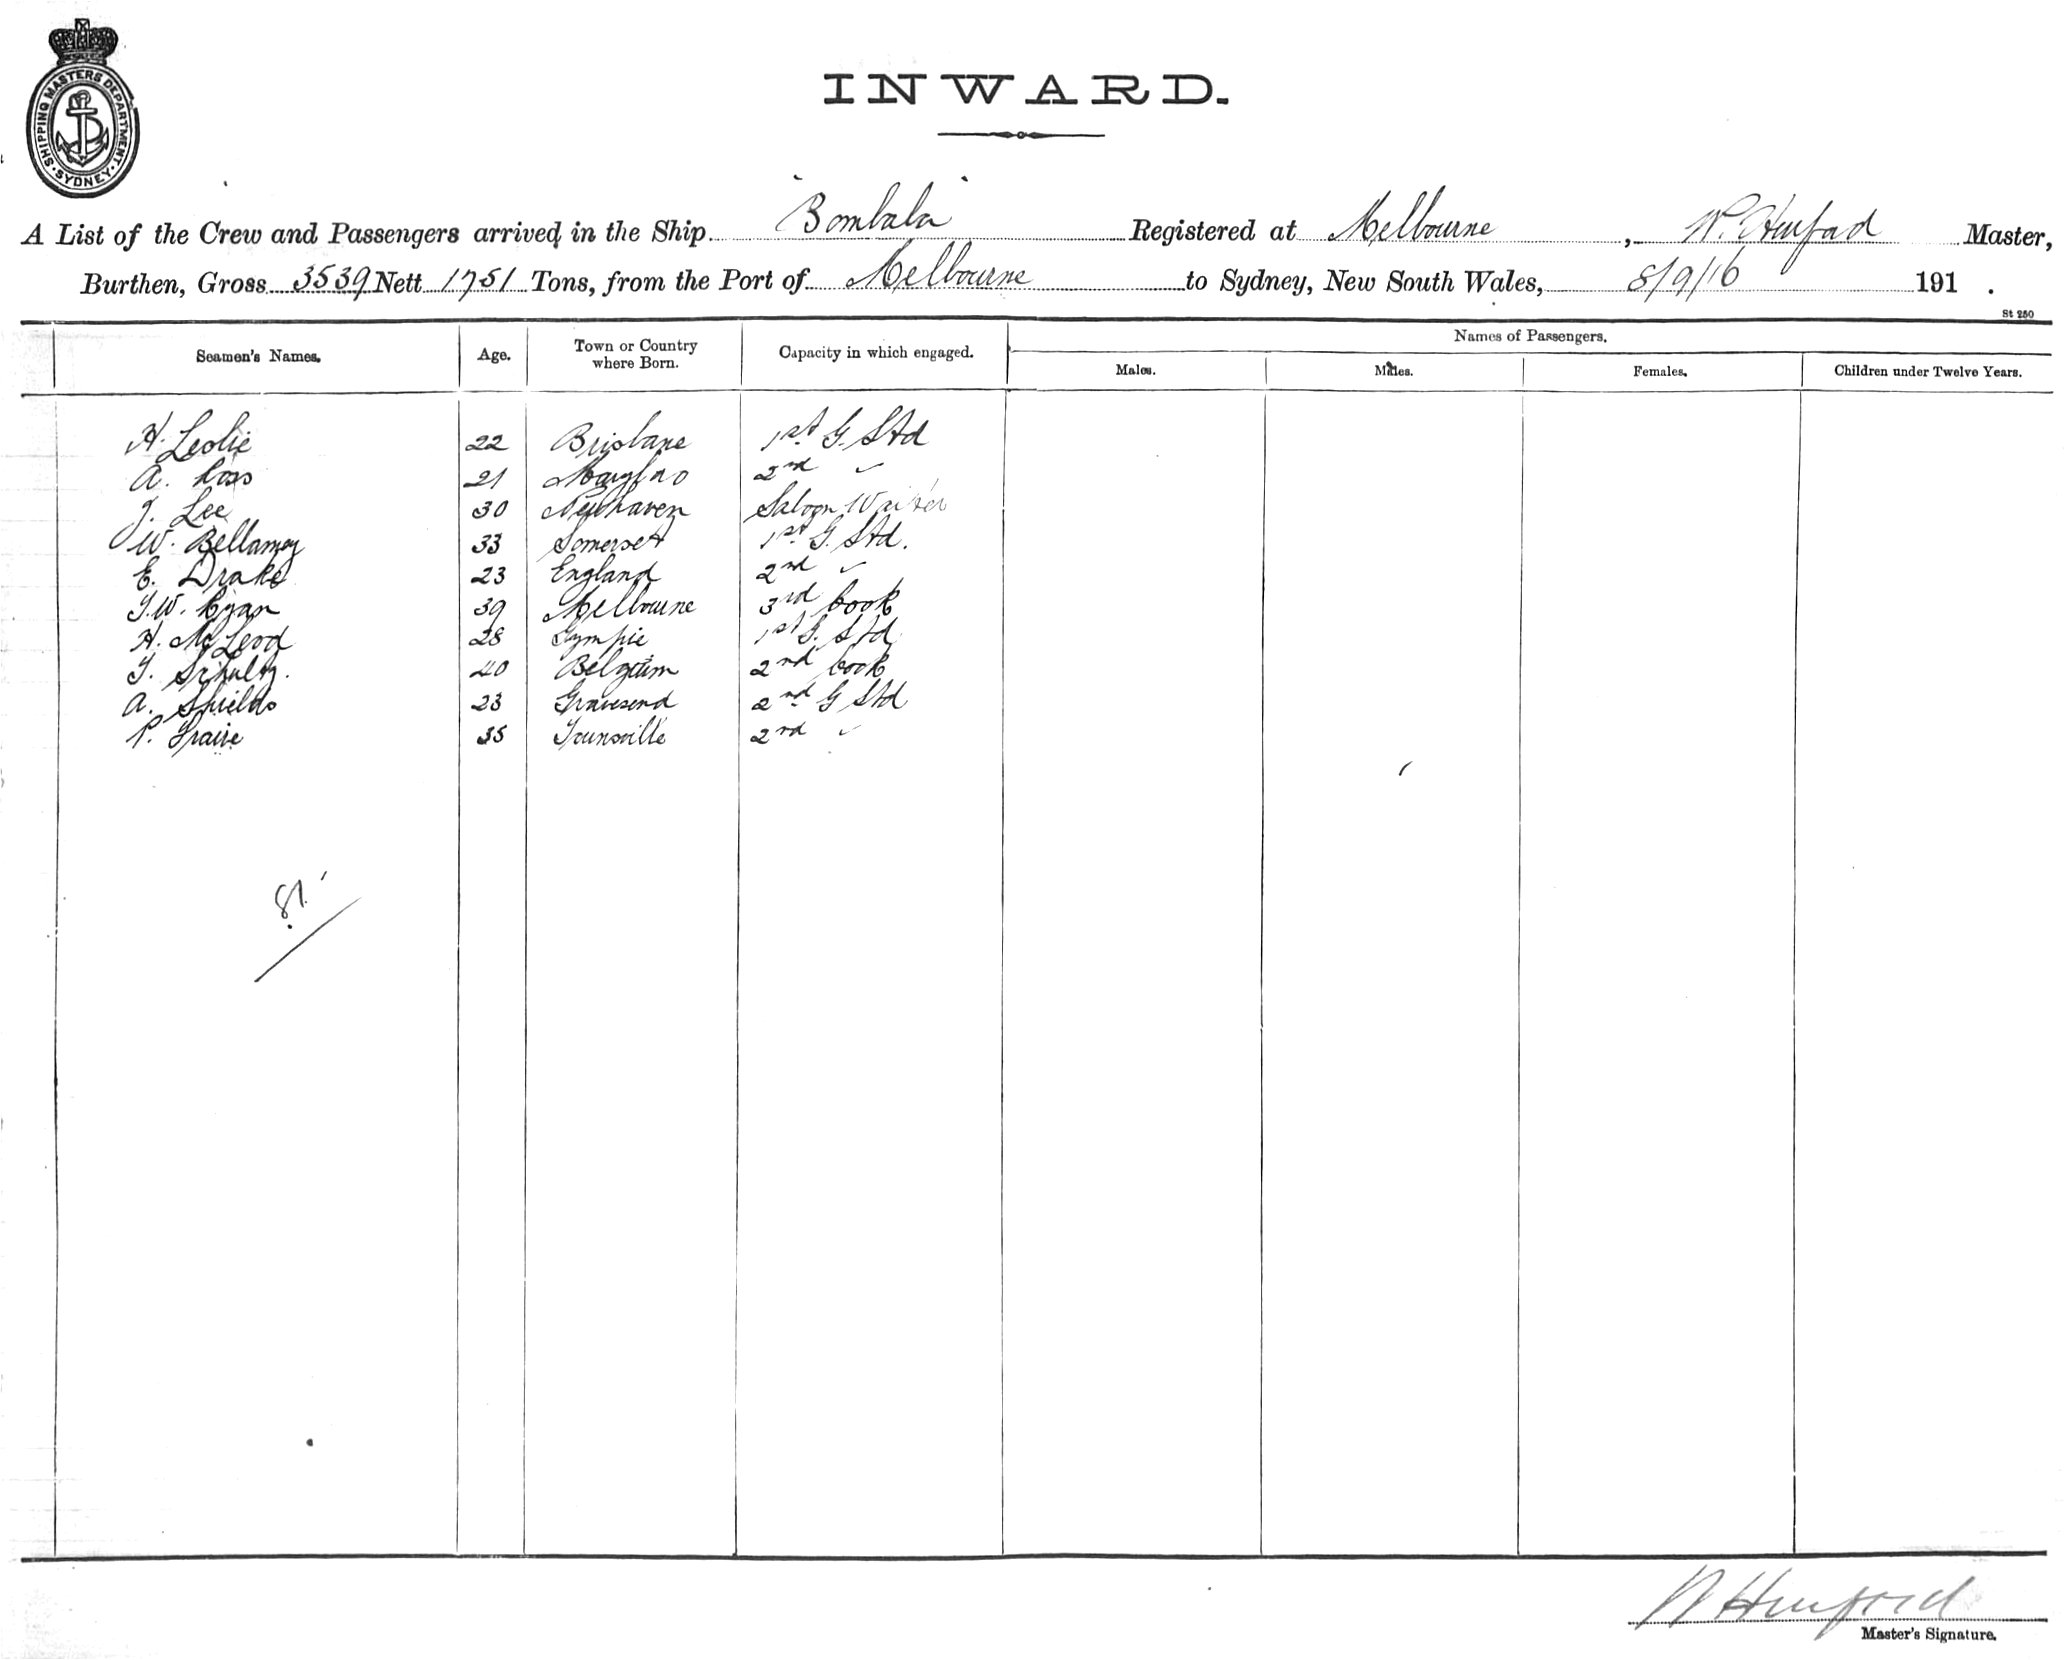 SHIPPING MASTERS DEPARTMENT. SYDNEY.
INWARD.
A List of the Crew and Passengers arrived in the Ship "Bombala" Registered at Melbourne, W. Hurford Master,
Burthen, Gross 3539 Nett 1751 Tons, from the Port of Melbourne to Sydney, New South Wales, 8/9/16 191 .
St 250
Seamen's Names. Age. Town or Country where Born. Capacity in which engaged. Names of Passengers.
Males. Males. Females. Children under Twelve Years.
H. Leslie 22 Brisbane 1st G. Std
A. 21 2nd "
J. Lee 30 Newhaven Saloon Waiter
W. Bellamy 33 Somerset 1st G. Std.
E. Drake 23 England 2nd "
39 Melbourne 3rd Cook
H. McLeod 28 Gympie 1st G. Std
Schultz. 40 Belgium 2nd Cook
A. Shields 23 Gravesend 2nd G Std
P. 35 2nd "
81.
W Hurford
Master's Signature.